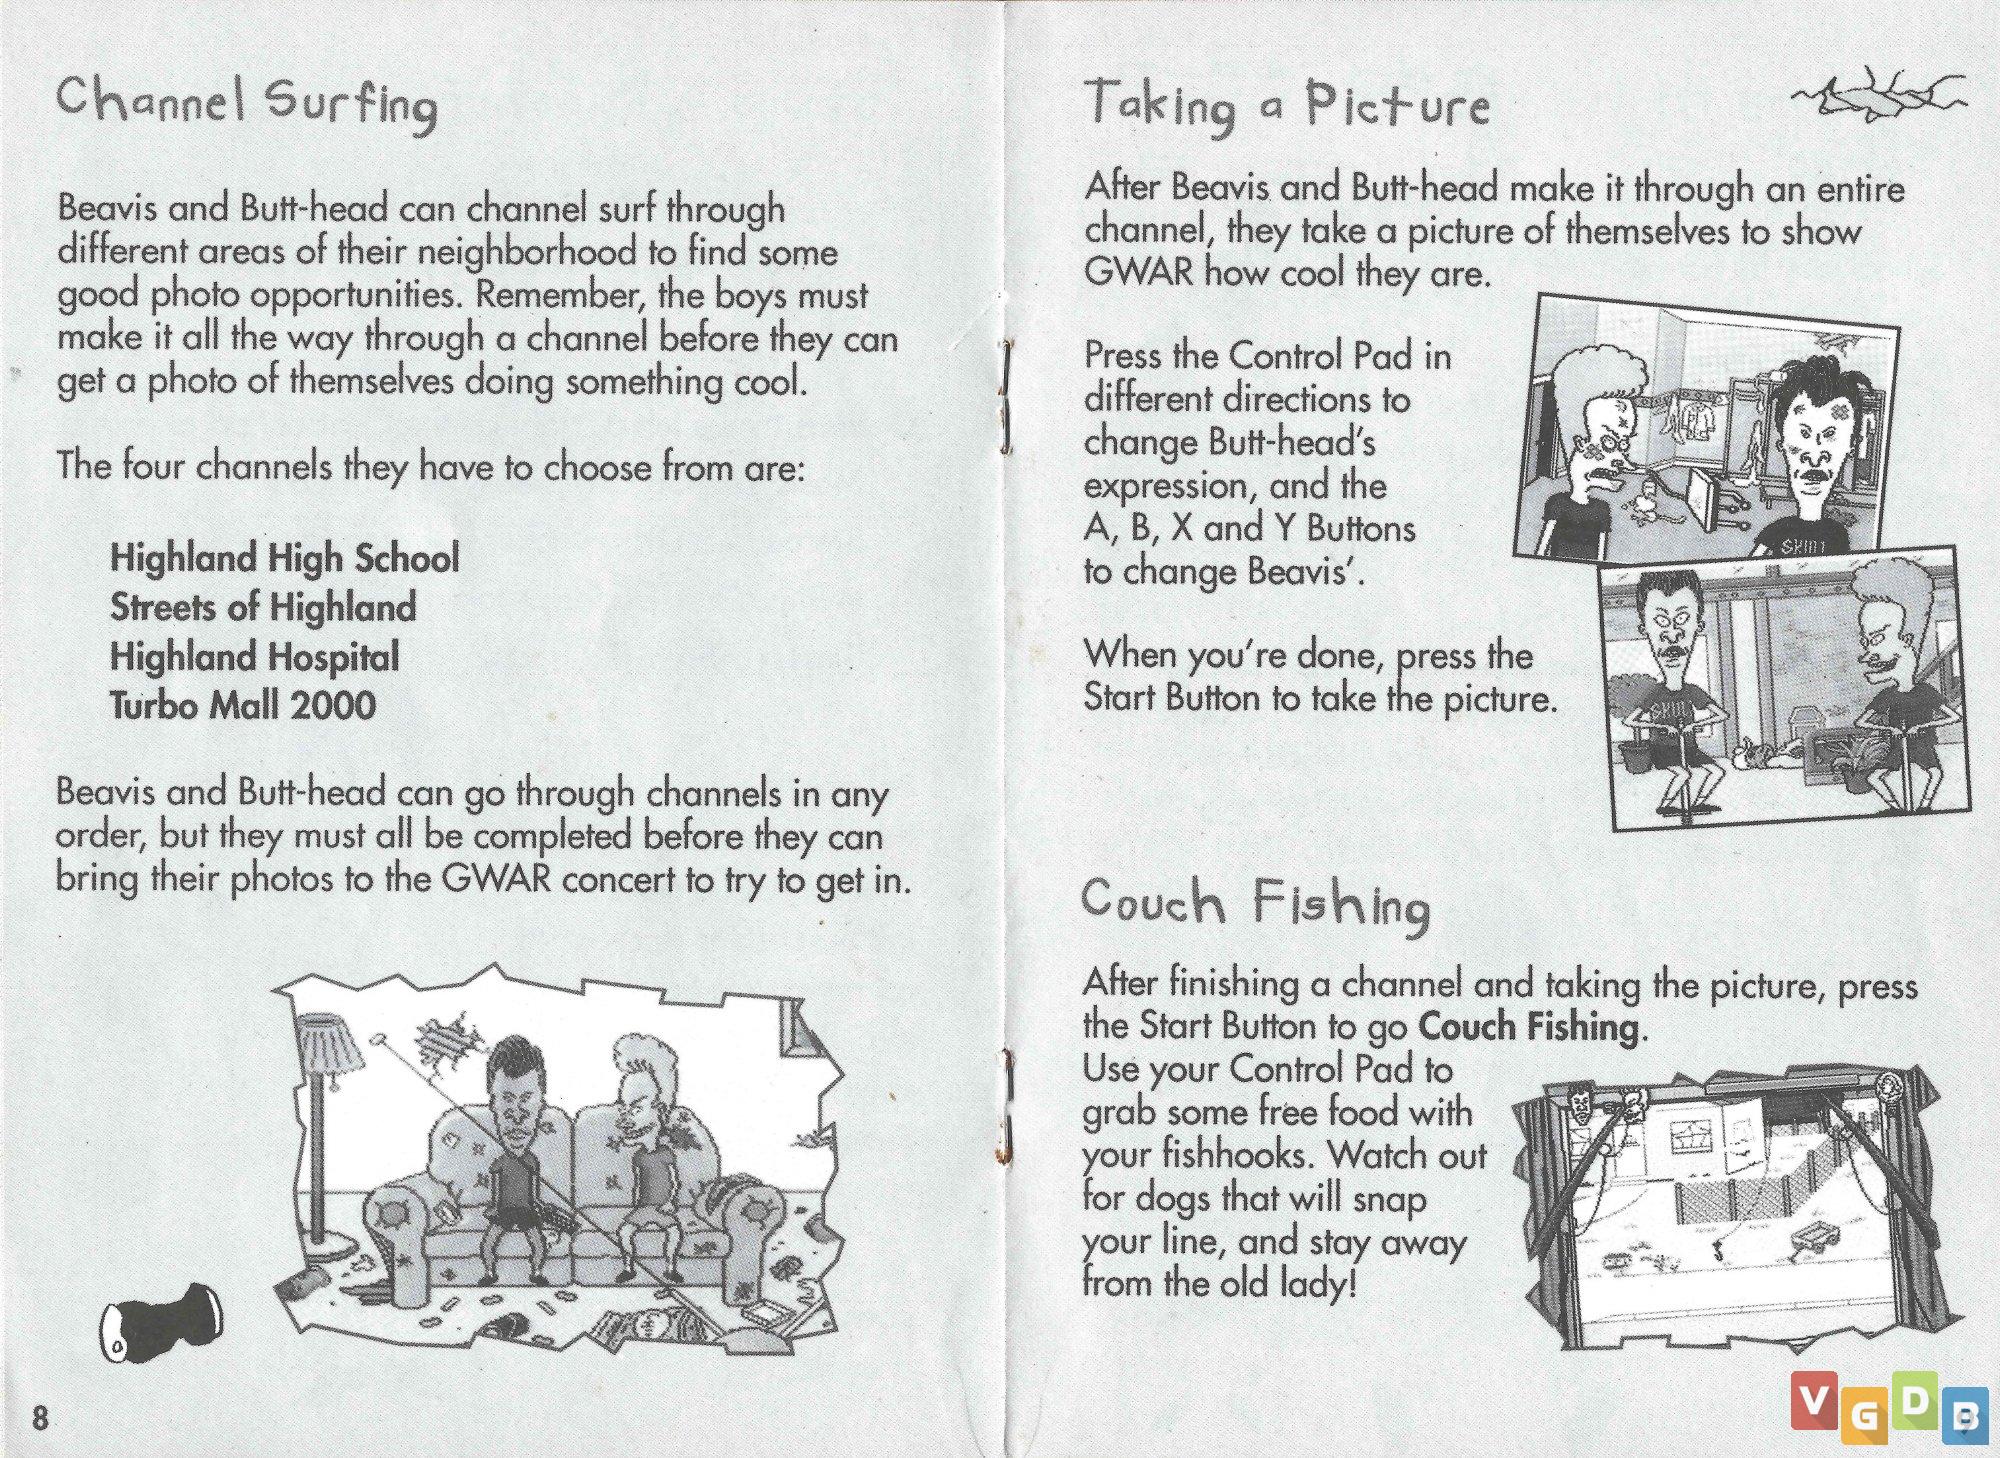 Channel Surfing
Beavis and Butt-head can channel surf through
different areas of their neighborhood to find some
good photo opportunities. Remember, the boys must
make it all the way through a channel before they can
get a photo of themselves doing something cool.
The four channels they have to choose from are:
Highland High School
Streets of Highland
Highland Hospital
Turbo Mall 2000
Beavis and Butt-head can go through channels in any
order, but they must all be completed before they can
bring their photos to the GWAR concert to try to get in.
8
Taking a Picture
After Beavis and Butt-head make it through an entire
channel, they take a picture of themselves to show
GWAR how cool they are.
Press the Control Pad in
different directions to
change Butt-head's
expression, and the
A, B, X and Y Buttons
to change Beavis'.
When you're done, press the
Start Button to take the picture.
Couch Fishing
After finishing a channel and taking the picture, press
the Start Button to go Couch Fishing.
Use your Control Pad to
grab some free food with
your fishhooks. Watch out
for dogs that will snap
your line, and stay away
from the old lady!
VGDB